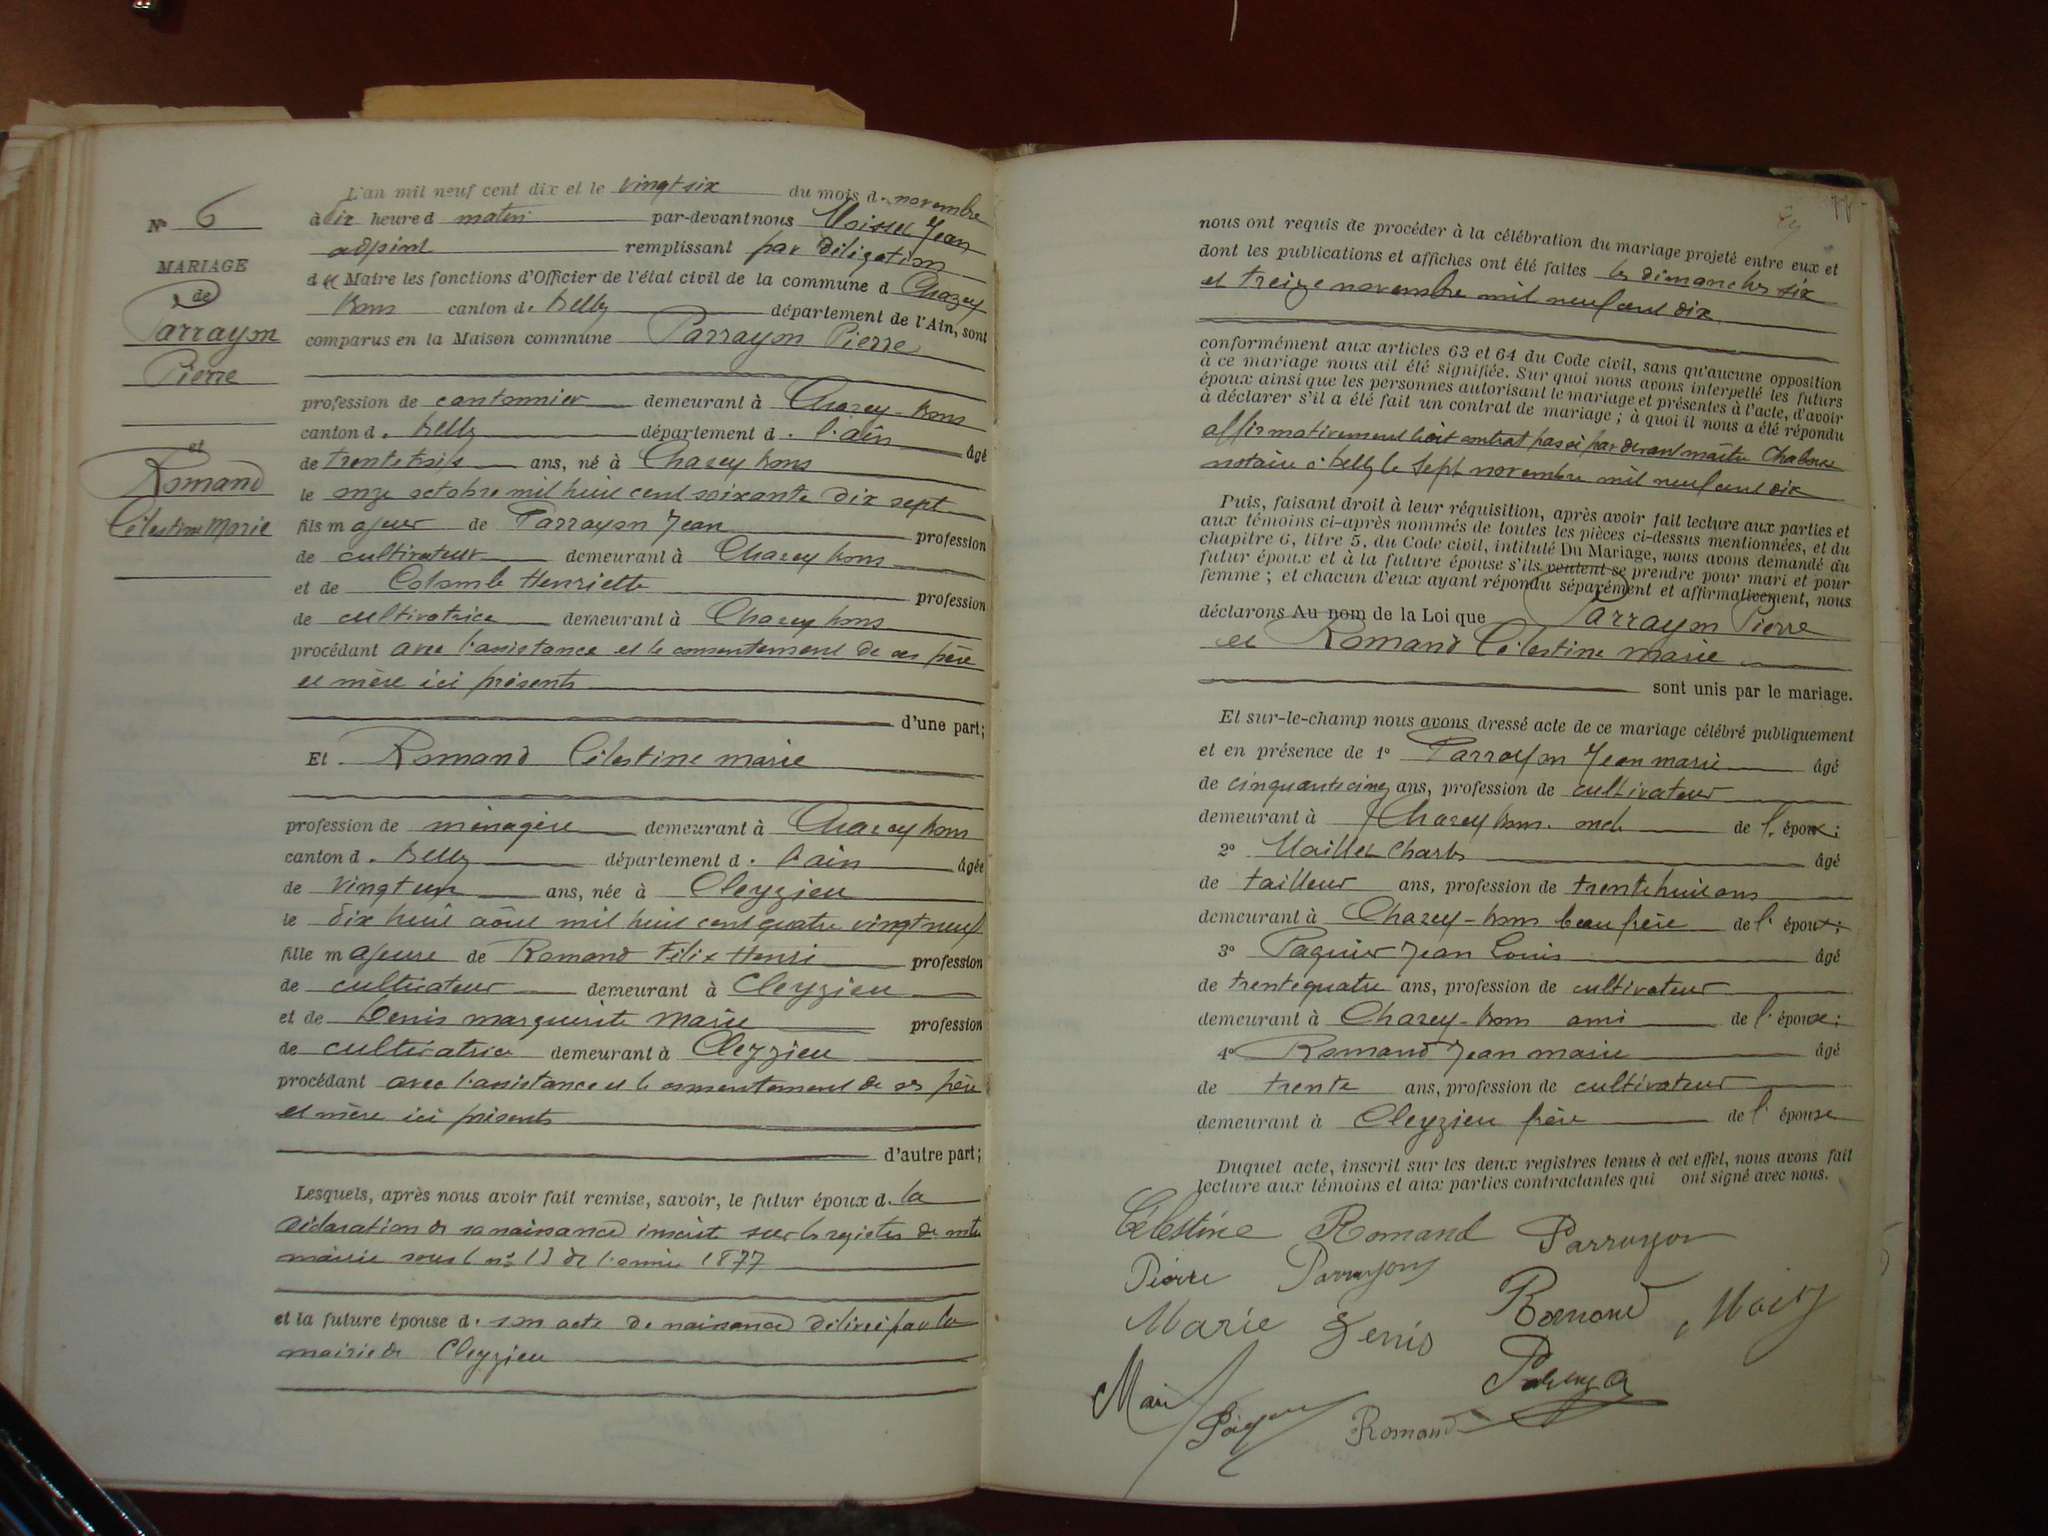 L'an mil neuf cent dix et le vingt six du mois d. novembre
à dix heure d matin par-devant nous Moisset Jean
adjoint remplissant par déligation
d Maire les fonctions d'Officier de l'état civil de la commune d Chazey
Bons canton d. Belley département de l'Ain, sont
comparus en la Maison commune Parrayon Pierre
N° 6
MARIAGE
de
Parrayon
Pierre
et
Romand
Célestine Marie
profession de cantonnier demeurant à Chazey-Bons
canton d. Belley département d. l'ain âgé
de trente trois ans, né à Chazey Bons
le onze octobre mil huit cent soixante dix sept
fils majeur de Parrayon Jean profession
de cultivateur demeurant à Chazey Bons
et de Colomb Henriette profession
de cultivatrice demeurant à Chazey Bons
procédant avec l'assistance et le consentement de ses père
et mère ici présents
d'une part;
Et Romand Célestine marie
profession de ménagère demeurant à Chazey Bons
canton d. Belley département d. l'ain âgée
de vingt un ans, née à Cleyzieu
le dix huit août mil huit cent quatre vingt neuf
fille majeure de Romand Félix Henri profession
de cultivateur demeurant à Cleyzieu
et de Denis marguerite Marie profession
de cultivatrice demeurant à Cleyzieu
procédant avec l'assistance et le consentement de ses père
et mère ici présents
d'autre part;
Lesquels, après nous avoir fait remise, savoir, le futur époux d. la
déclaration de sa naissance inscrit sur les registres de notre
mairie sous l n° 13 de l'année 1877
et la future épouse d. son acte de naissance délivré par la
mairie de Cleyzieu
nous ont requis de procéder à la célébration du mariage projeté entre eux et
dont les publications et affiches ont été faites les dimanches six
et treize novembre mil neuf cent dix
conformément aux articles 63 et 64 du Code civil, sans qu'aucune opposition
à ce mariage nous ait été signifiée. Sur quoi nous avons interpellé les futurs
époux ainsi que les personnes autorisant le mariage et présentes à l'acte, d'avoir
à déclarer s'il a été fait un contrat de mariage; à quoi il nous a été répondu
affirmativement contrat passé par devant maître
notaire à Belley le sept novembre mil neuf cent dix
Puis, faisant droit à leur réquisition, après avoir fait lecture aux parties et
aux témoins ci-après nommés de toutes les pièces ci-dessus mentionnées, et du
chapitre 6, titre 5, du Code civil, intitulé Du Mariage, nous avons demandé au
futur époux et à la future épouse s'ils veulent se prendre pour mari et pour
femme; et chacun d'eux ayant répondu séparément et affirmativement, nous
déclarons Au nom de la Loi que Parrayon Pierre
et Romand Célestine marie
sont unis par le mariage.
Et sur-le-champ nous avons dressé acte de ce mariage célébré publiquement
et en présence de 1° Parrayon Jean marie âgé
de cinquante cinq ans, profession de cultivateur
demeurant à Chazey Bons oncle de l. époux;
2° Maillet Charles âgé
de tailleur ans, profession de trente huit ans
demeurant à Chazey-Bons beau frère de l' époux;
3° Paquier Jean Louis âgé
de trente quatre ans, profession de cultivateur
demeurant à Chazey-Bons ami de l' époux;
4° Romand Jean marie âgé
de trente ans, profession de cultivateur
demeurant à Cleyzieu frère de l' épouse
Duquel acte, inscrit sur les deux registres tenus à cet effet, nous avons fait
lecture aux témoins et aux parties contractantes qui ont signé avec nous.
Célestine Romand Parrayon
Pierre Parrayon
Marie Denis Romand
Romand